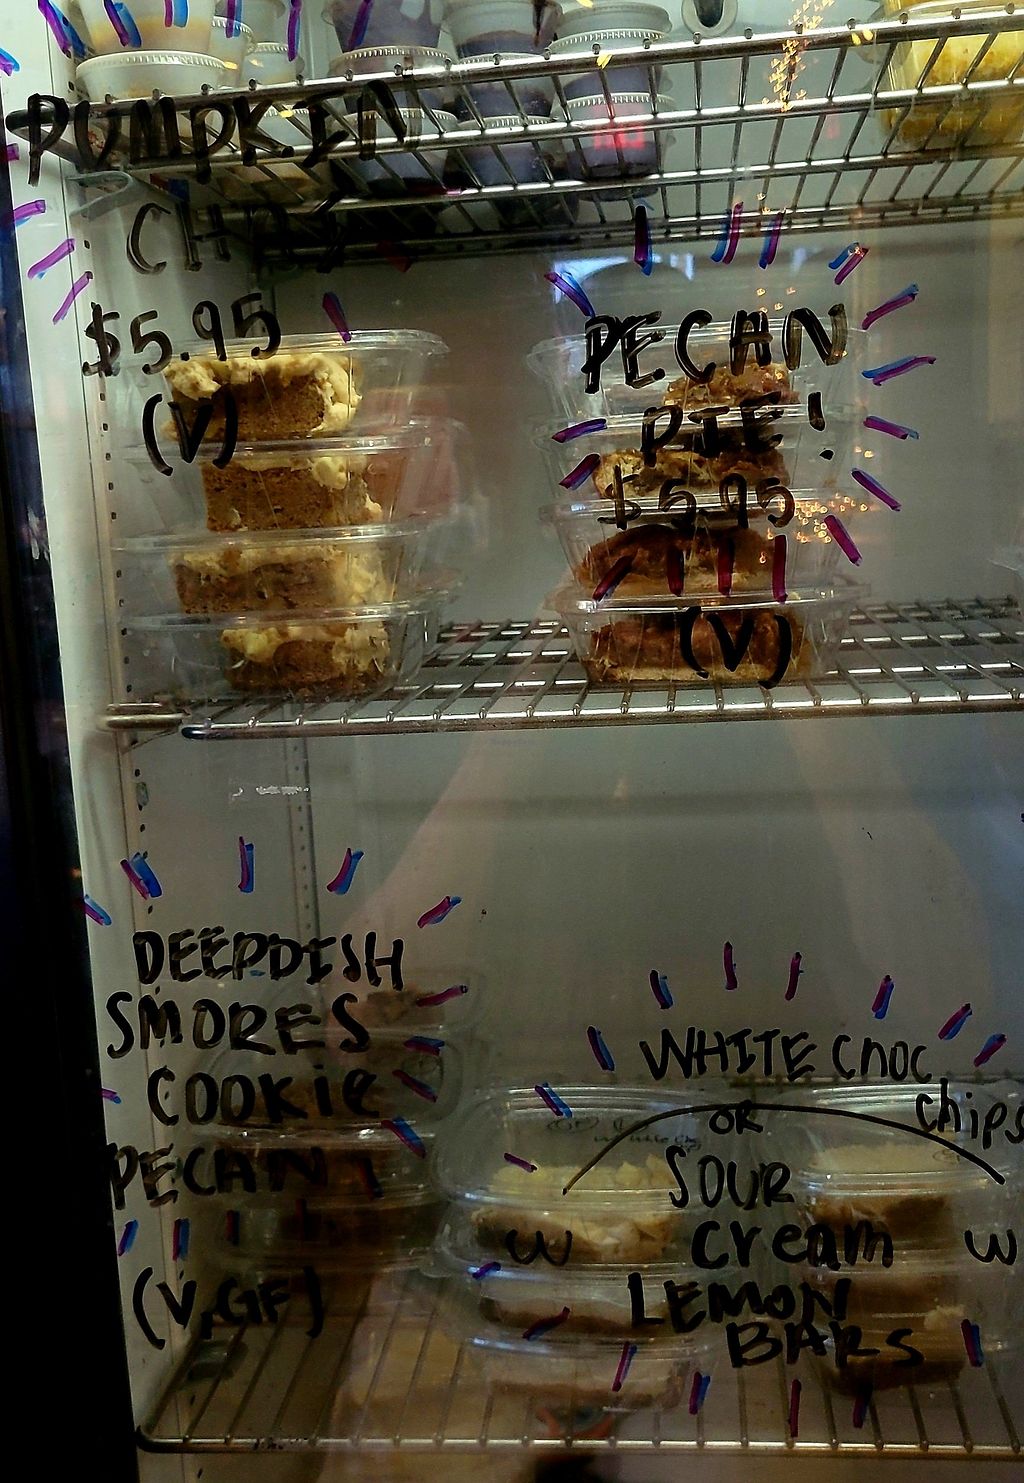 PUMPKIN
$5.95
(V)
PECAN
PIE!
$5.95
(V)
DEEPDISH
SMORES
COOKie
PECAN
(V, GF)
WHITE CHOC
chips
OR
SOUR
Cream
LEMON
BARS